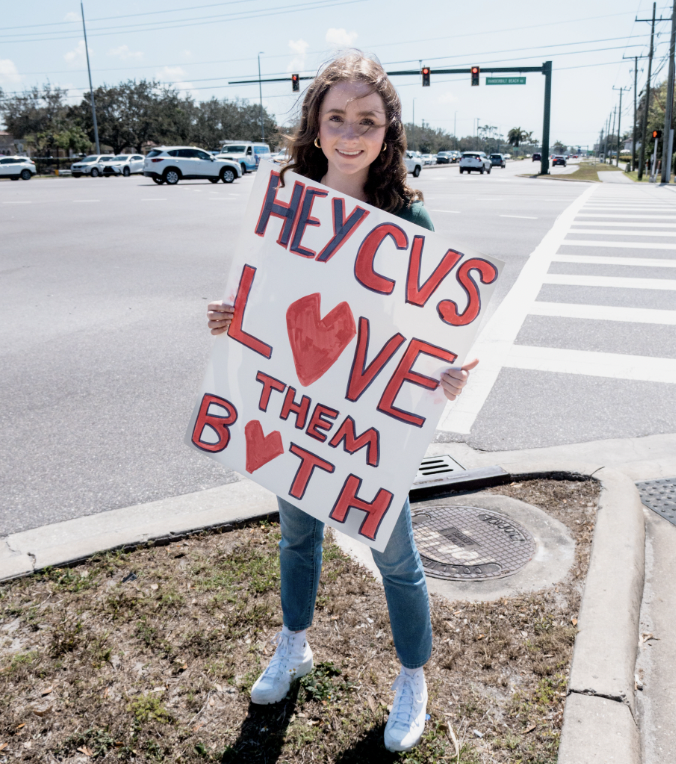 HEY CVS
LOVE
THEM
BOTH